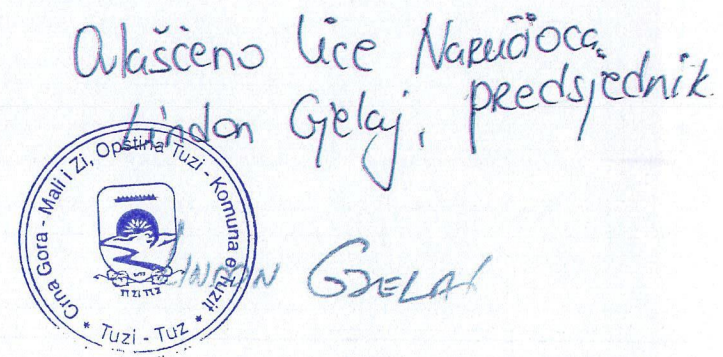 Ovlašćeno lice Naručioca,
Lindon Gjelaj, predsjednik.
Crna Gora - Mali i Zi, Opština Tuzi - Komuna e Tuzit
* Tuzi - Tuz *
TUZI TUZ
LINDON GJELAJ